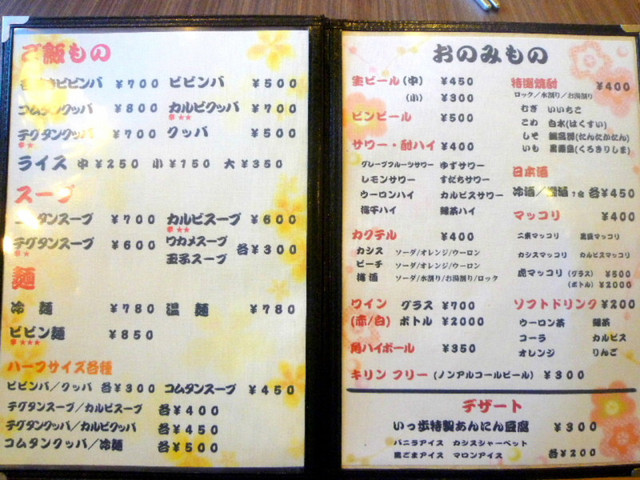 ご飯もの
ビビンバ ¥700 ビビンバ ¥500
コムタンクッパ ¥800 カルビクッパ ¥700
テグタンクッパ ¥700 クッパ ¥500
ライス 中¥250 小¥150 大¥350
スープ
コムタンスープ ¥700 カルビスープ ¥600
テグタンスープ ¥600 ワカメスープ 玉子スープ 各¥300
麺
冷麺 ¥780 温麺 ¥780
ビビン麺 ¥850
ハーフサイズ各種
ビビンバ/クッパ 各¥300 コムタンスープ ¥450
テグタンスープ/カルビスープ 各¥400
テグタンクッパ/カルビクッパ 各¥450
コムタンクッパ/冷麺 各¥500
おのみもの
生ビール (中) ¥450
(小) ¥300
ビンビール ¥500
サワー・酎ハイ ¥400
グレープフルーツサワー ゆずサワー
レモンサワー すだちサワー
ウーロンハイ カルピスサワー
梅干ハイ 緑茶ハイ
カクテル ¥400
カシス ソーダ/オレンジ/ウーロン
ピーチ ソーダ/オレンジ/ウーロン
梅酒 ソーダ/水割り/お湯割り/ロック
ワイン グラス ¥700
(赤/白) ボトル ¥2000
角ハイボール ¥350
キリン フリー (ノンアルコールビール) ¥300
特選焼酎 ¥400
ロック/水割り/お湯割り
むぎ いいちこ
こめ 白水(はくすい)
しそ 鍛高譚(たんたかたん)
いも 黒霧島(くろきりしま)
日本酒
冷酒/ 1合 各¥450
マッコリ ¥400
二東マッコリ 黒豆マッコリ
カシスマッコリ カルピスマッコリ
虎マッコリ (グラス) ¥500
(ボトル) ¥2000
ソフトドリンク ¥200
ウーロン茶 緑茶
コーラ カルピス
オレンジ りんご
デザート
いっ歩特製あんにん豆腐 ¥300
バニラアイス カシスシャーベット
黒ごまアイス マロンアイス 各¥200